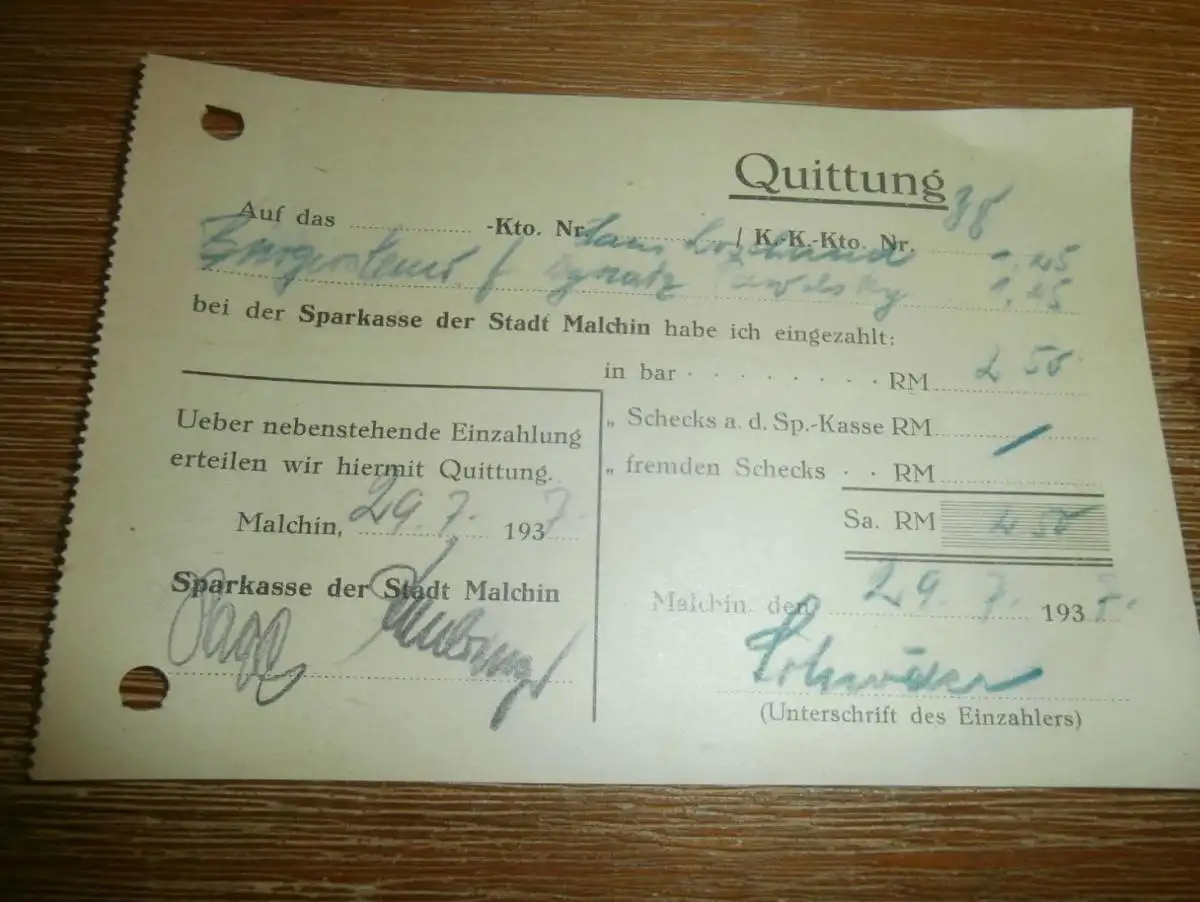 Quittung
Auf das ............ -Kto. Nr. / K.-K.-Kto. Nr. 38
Bürgersteuer f Ignatz Pawelsky 1,25
bei der Sparkasse der Stadt Malchin habe ich eingezahlt:
in bar . . . . . . . . RM 2 50
„ Schecks a. d. Sp.-Kasse RM
„ fremden Schecks . . RM
Sa. RM 2 50
Ueber nebenstehende Einzahlung
erteilen wir hiermit Quittung.
Malchin, 29.7. 1937.
Sparkasse der Stadt Malchin
Malchin, den 29. 7. 193
(Unterschrift des Einzahlers)